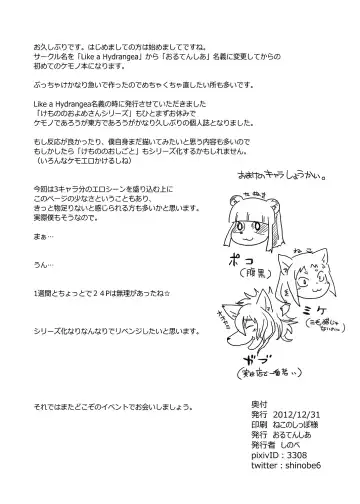 お久しぶりです。はじめましての方は始めましてですね。
サークル名を「Like a Hydrangea」から「おるてんしあ」名義に変更してからの
初めてのケモノ本になります。
ぶっちゃけかなり急いで作ったのでめちゃくちゃ直したい所も多いです。
Like a Hydrangea名義の時に発行させていただきました
「けもののおよめさんシリーズ」もひとまずお休みで
ケモノであろうが東方であろうがかなり久しぶりの個人誌となりました。
もし反応が良かったり、僕自身まだ描いてみたいと思う内容も多いので
もしかしたら「けもののおしごと」もシリーズ化するかもしれません。
(いろんなケモエロかけるしね)
今回は3キャラ分のエロシーンを盛り込む上に
このページの少なさということもあり、
きっと物足りないと感じられる方も多いかと思います。
実際僕もそうなので。
まぁ…
うん…
1週間とちょっとで24Pは無理があったね☆
シリーズ化なりなんなりでリベンジしたいと思います。
それではまたどこぞのイベントでお会いしましょう。
おまけのキャラしょうかい。
たぬき
ポコ
(腹黒)
ねこ
ミケ
オオカミ
ガブ
(実は店で一番若い)
奥付
発行 2012/12/31
印刷 ねこのしっぽ様
発行 おるてんしあ
発行者 しのべ
pixivID：3308
twitter：shinobe6